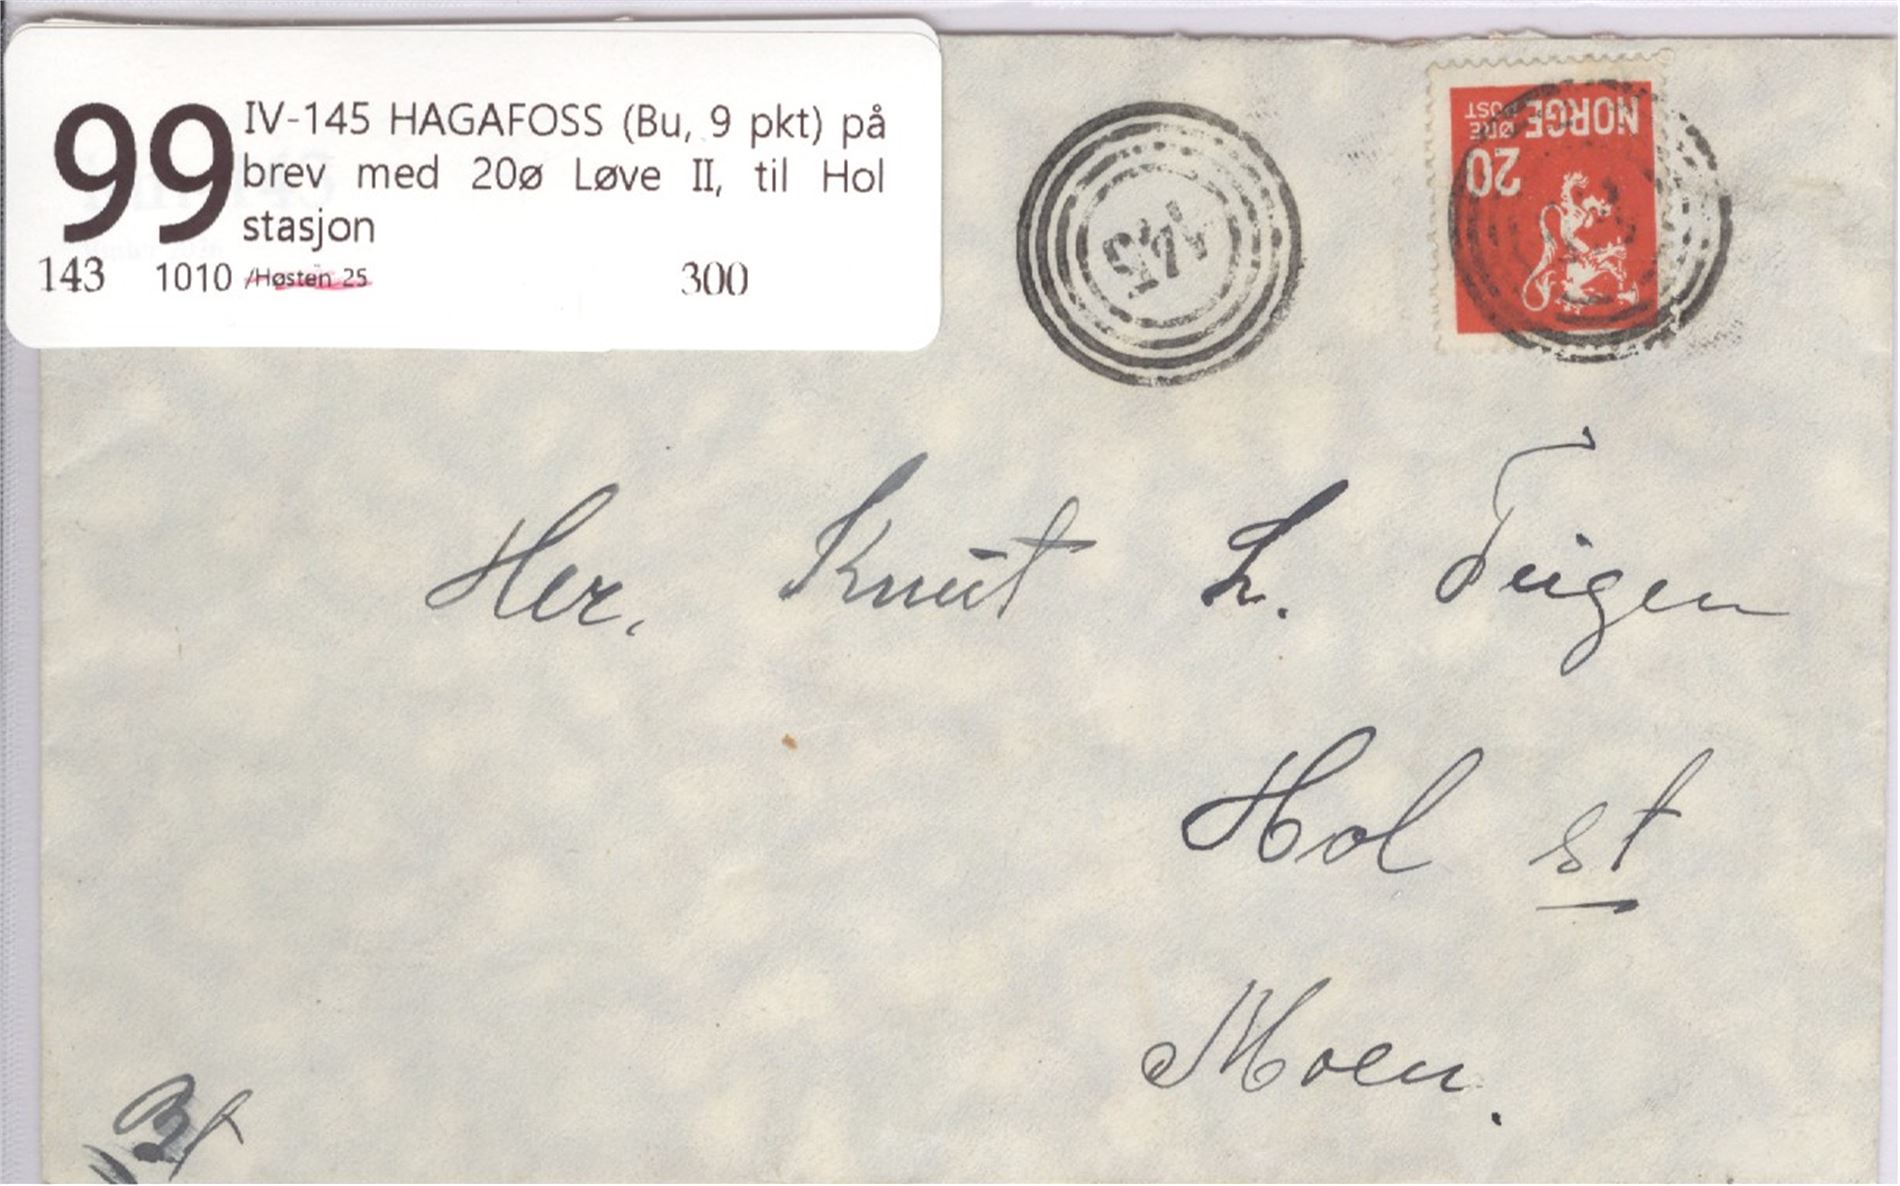 99
IV-145 HAGAFOSS (Bu, 9 pkt) på
brev med 20ø Løve II, til Hol
stasjon
143 1010 /Høsten 25 300
145
NORGE
ØRE
POST
20
Her. Knut L. Teigen
Hol st
Moen.